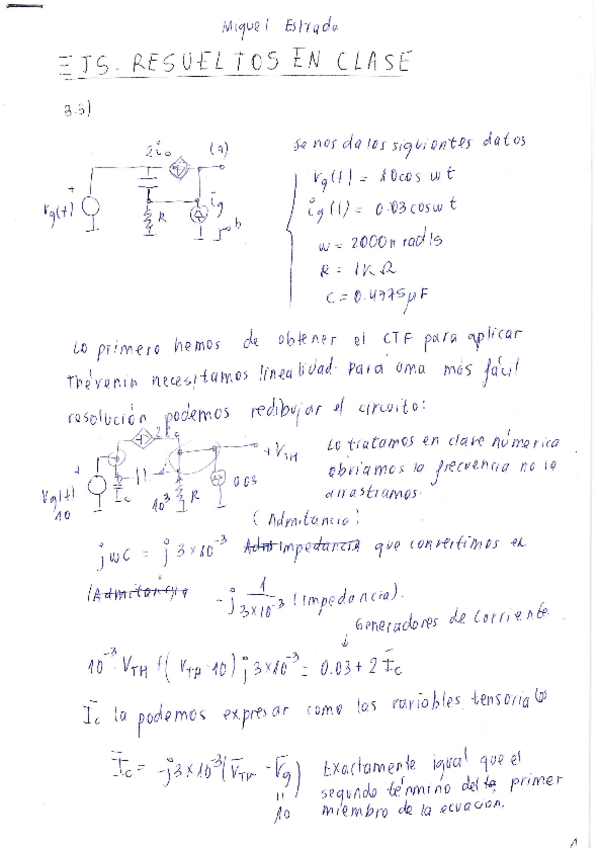 Miguel Estrada
EJS. RESUELTOS EN CLASE
3.5)
2i₀ (a)
Se nos da los siguientes datos
vg(t) = 10cos wt
+
vg(t)
R
ig
b
ig(t) = 0.03coswt
w = 2000π rad/s
R = 1KΩ
C = 0.4775μF
Lo primero hemos de obtener el CTF para aplicar
Thévenin necesitamos linealidad. Para una más fácil
resolución podemos redibujar el circuito:
+ VTH
Lo tratamos en clave númerica
obviamos la frecuencia no la
arrastramos.
+
Vg(t)
10
Ic
10³
R
0.03
(Admitancia)
jwC = j 3×10⁻³ Impedancia que convertimos en
(Admitancia -j 1/3×10⁻³ (Impedancia).
Generadores de corriente
10⁻³ VTH + (VTH - 10) j 3×10⁻³ = 0.03 + 2 Ic
Ic la podemos expresar como las variables tensoriales
Ic = -j3×10⁻³ (VTH - Vg)
10
Exactamente igual que el
segundo término del primer
miembro de la ecuación.
1